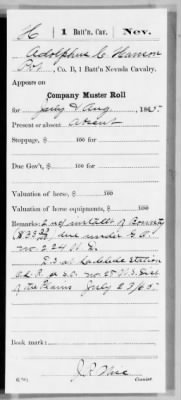 H 1 Batt'n. Cav. Nev.
Adolphus C. Hanson
Pvt, Co. B, 1 Batt'n Nevada Cavalry.
Appears on
Company Muster Roll
for July & Aug, 1865.
Present or absent Absent
Stoppage, $ 100 for
Due Gov't, $ 100 for
Valuation of horse, $ 100
Valuation of horse equipments, $ 100
Remarks: 2nd installt of Bounty
due under G.O.
no 224 W.D.
station
no 25
of the Plains July 23/65.
Book mark:
Copyist.